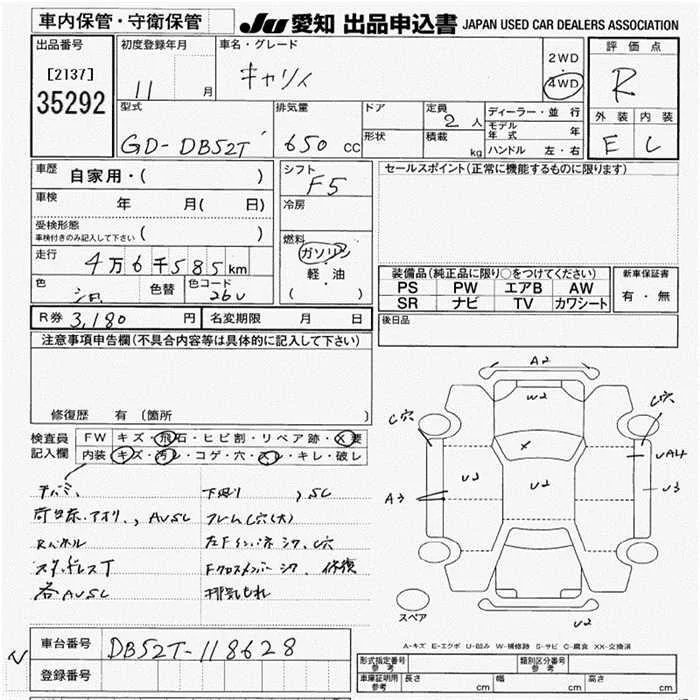 車内保管・守衛保管
JU 愛知 出品申込書 JAPAN USED CAR DEALERS ASSOCIATION
出品番号
[2137]
35292
初度登録年月
11 月
車名・グレード
キャリイ
2WD
・
4WD
評価点
R
外装 内装
E C
型式
GD-DB52T
排気量
650 CC
ドア
形状
定員
2 人
積載
kg
ディーラー・並行
モデル年式 年
ハンドル 左・右
車歴
自家用・( )
車検
年 月( 日)
受検形態
車検付きのみ記入して下さい ( )
走行
4万6千585km
色 色替 色コード
26U
シフト
F5
冷房
燃料
ガソリン
・
軽・油
( )
セールスポイント(正常に機能するものに限ります)
装備品(純正品に限り○をつけてください)
PS PW エアB AW
SR ナビ TV カワシート
新車保証書
有・無
後日品
R券 3,180 円 名変期限 月 日
注意事項申告欄(不具合内容等は具体的に記入して下さい)
修復歴 有(箇所 )
検査員
記入欄
FW キズ・飛石・ヒビ割・リペア跡・X要
内装 キズ・汚レ・コゲ・穴・スレ・キレ・破レ
下廻り、SC
荷台床、アオリ、AUSC フレームC穴(大)
Rパネル 左Fインパネシワ、C穴
スタッドレスT Fクロスメンバーシワ、修復
各AUSC 排気もれ
A2
W2
C穴
C穴
X
UA4
U2
U2
U3
A3
U2
スペア
A-キズ E-エクボ U-凹み W-補修跡 S-サビ C-腐食 XX-交換済
車台番号 DB52T-118628
登録番号
形式指定番号 参考 類別区分番号 参考
車庫証明用 参考 長さ cm 幅 cm 高さ cm